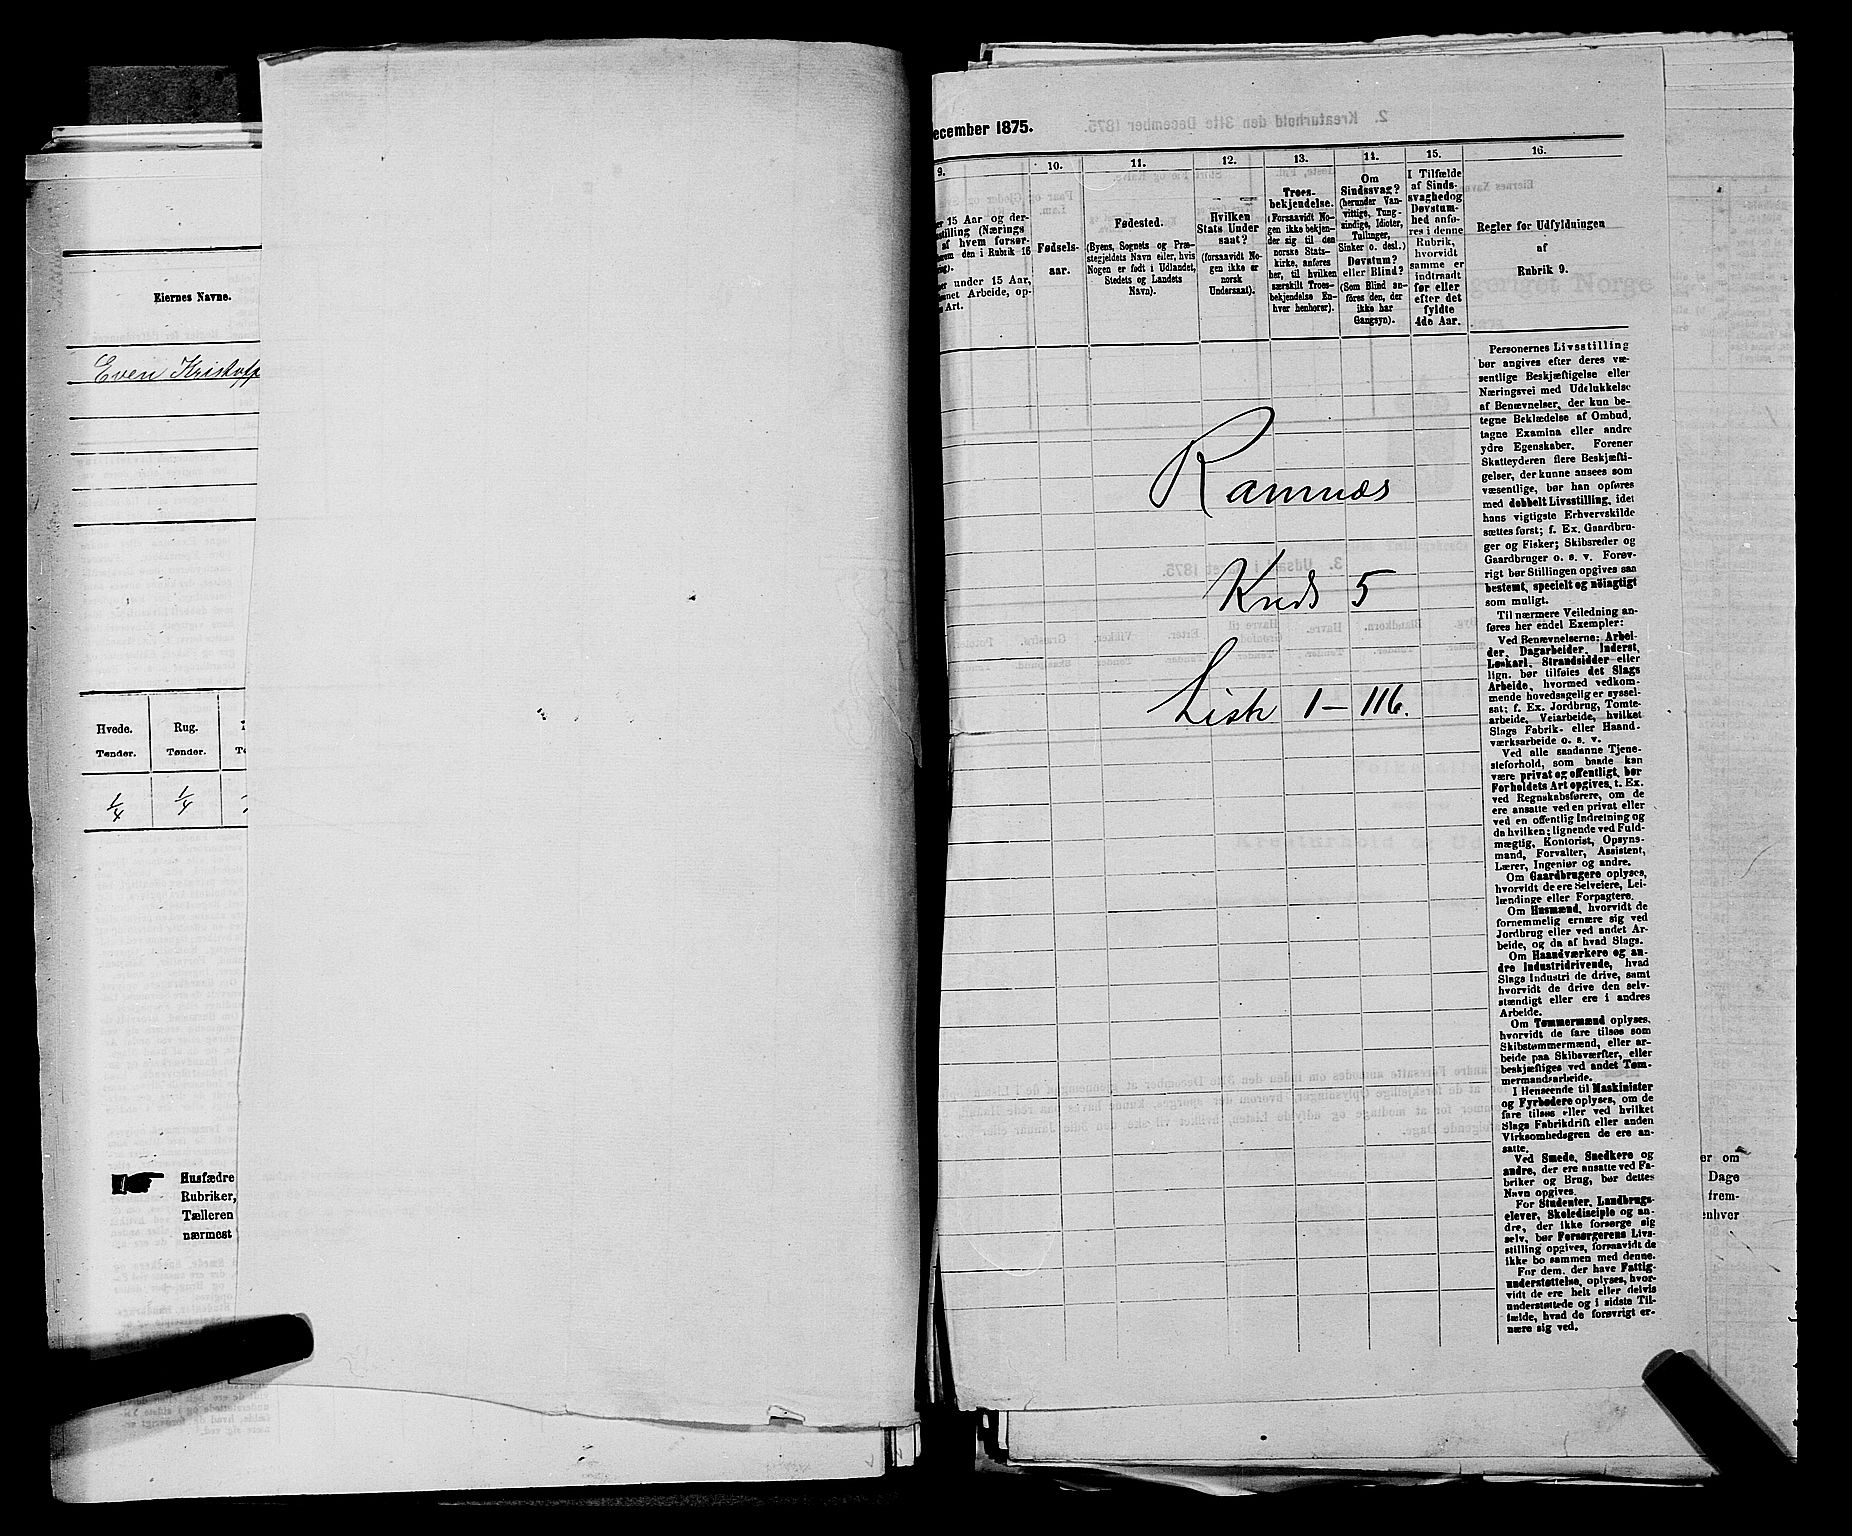 Eiernes Navne.
Even Kristoff
Hvede. Rug.
Tønder. Tønder.
1/4 1/4
Husfædre
Rubriker,
Tælleren
nærmest
ecember 1875.
9. 10. 11. 12. 13. 14. 15. 16.
15 Aar og der-
stilling (Nærings
af hvem forsør-
den i Rubrik 16
under 15 Aar,
Arbeide, op-
Art.
Fødsels-
aar.
Fødested.
(Byens, Sognets og Præ-
stegjeldets Navn eller, hvis
Nogen er født i Udlandet,
Stedets og Landets
Navn).
Hvilken
Stats Under
saat?
(forsaavidt No-
gen ikke er
norsk
Undersaat).
Troes-
bekjendelse.
(Forsaavidt No-
gen ikke bekjen-
der sig til den
norske Stats-
kirke, anføres
her, til hvilken
særskilt Troes-
bekjendelse En-
hver henhører).
Om
Sindssvag?
(herunder Van-
vittige, Tung-
sindige, Idioter,
Tullinger,
Sinker o. desl.)
Døvstum?
eller Blind?
(Som Blind an-
føres den, der
ikke har
Gangsyn).
I Tilfælde
af Sinds-
svaghed og
Døvstum-
hed anfø-
res i denne
Rubrik,
hvorvidt
samme er
indtraadt
før eller
efter det
fyldte
4de Aar.
Regler for Udfyldningen
af
Rubrik 9.
Ramnæs
Kreds 5
Liste 1 – 116.
Personernes Livsstilling
bør angives efter deres væ-
sentlige Beskjæftigelse eller
Næringsvei med Udelukkelse
af Benævnelser, der kun be-
tegne Beklædelse af Ombud,
tagne Examina eller andre
ydre Egenskaber. Forener
Skatteyderen flere Beskjæfti-
gelser, der kunne ansees som
væsentlige, bør han opføres
med dobbelt Livsstilling, idet
hans vigtigste Erhvervskilde
sættes først; f. Ex. Gaardbru-
ger og Fisker; Skibsreder og
Gaardbruger o. s. v. Forøv-
rigt bør Stillingen opgives saa
bestemt, specielt og nøiagtigt
som muligt.
Til nærmere Veiledning an-
føres her endel Exempler:
Ved Benævnelserne: Arbei-
der, Dagarbeider, Inderst,
Løskarl, Strandsidder eller
lign. bør tilføies det Slags
Arbeide, hvormed vedkom-
mende hovedsagelig er syssel-
sat; f. Ex. Jordbrug, Tomte-
arbeide, Veiarbeide, hvilket
Slags Fabrik- eller Haand-
værksarbeide o. s. v.
Ved alle saadanne Tjene-
steforhold, som baade kan
være privat og offentligt, bør
Forholdets Art opgives, t. Ex.
ved Regnskabsførere, om de
ere ansatte ved en privat eller
ved en offentlig Indretning og
da hvilken; lignende ved Fuld-
mægtig, Kontorist, Opsyns-
mand, Forvalter, Assistent,
Lærer, Ingeniør og andre.
Om Gaardbrugere oplyses,
hvorvidt de ere Selveiere, Lei-
lændinge eller Forpagtere.
Om Husmænd, hvorvidt de
fornemmelig ernære sig ved
Jordbrug eller ved andet Ar-
beide, og da af hvad Slags.
Om Haandværkere og an-
dre Industridrivende, hvad
Slags Industri de drive, samt
hvorvidt de drive den selv-
stændigt eller ere i andres
Arbeide.
Om Tømmermænd oplyses,
hvorvidt de fare tilsøs som
Skibstømmermænd, eller ar-
beide paa Skibsværfter, eller
beskjæftiges ved andet Tøm-
mermandsarbeide.
I Henseende til Maskinister
og Fyrbødere oplyses, om de
fare tilsøs eller ved hvilket
Slags Fabrikdrift eller anden
Virksomhedsgren de ere an-
satte.
Ved Smede, Snedkere og
andre, der ere ansatte ved Fa-
briker og Brug, bør dettes
Navn opgives.
For Studenter, Landbrugs-
elever, Skoledisciple og an-
dre, der ikke forsørge sig
selv, bør Forsørgerens Livs-
stilling opgives, forsaavidt de
ikke bo sammen med denne.
For dem, der have Fattig-
understøttelse, oplyses, hvor-
vidt de ere helt eller delvis
understøttede og i sidste Til-
fælde, hvad de forøvrigt er-
nære sig ved.
er om
Dage
frem-
enhver